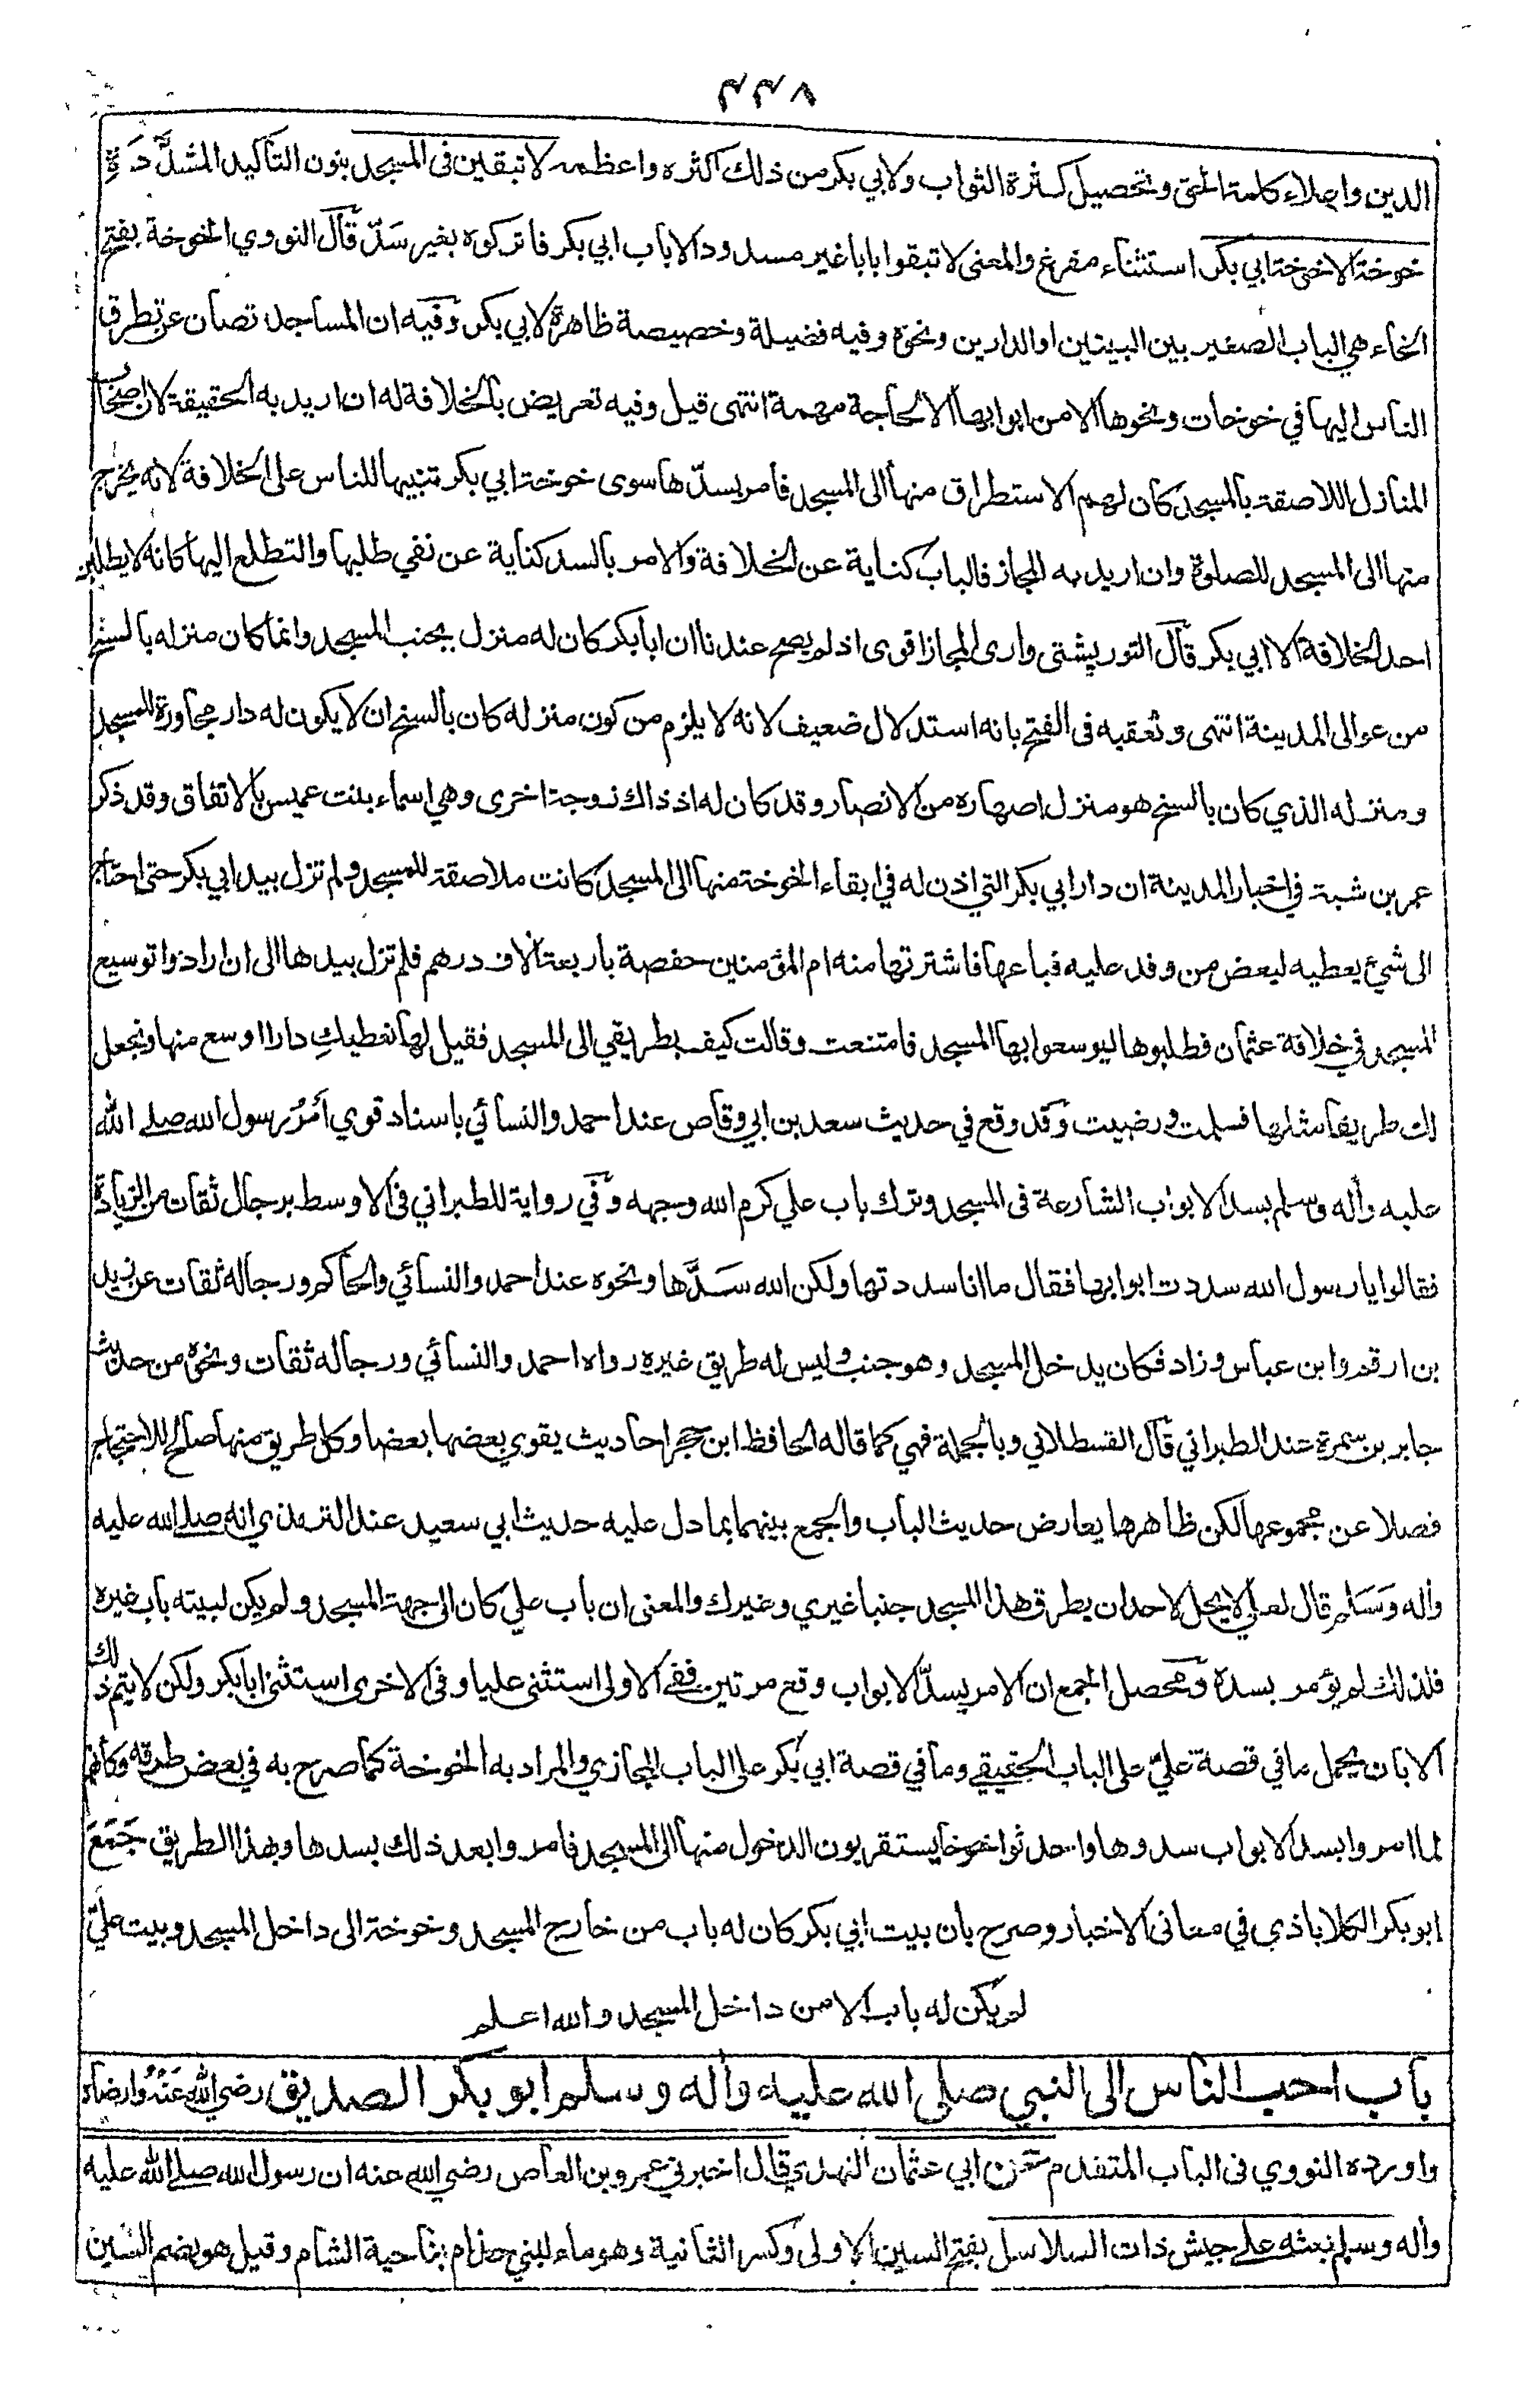 ٤٤٨
الدين واعلاء كلمة الحق وتحصيل كثرة الثواب ولابي بكر من ذلك اكثره واعظمه لا تبقين فى المسجد بنون التأكيد المشدَّدَةِ
خوخة الا خوخة ابي بكر استثناء مفرغ والمعنى لا تبقوا بابا غير مسدود الا باب ابي بكر فاتركوه بغير سَدّ قال النووي الخوخة بفتح
الخاء هي الباب الصغير بين البيتين او الدارين ونحوه وفيه فضيلة وخصيصة ظاهرة لابي بكر وفيه ان المساجد تصان عن تطرق
الناس اليها في خوخات ونحوها الا من ابوابها الا لحاجة مهمة انتهى قيل وفيه تعريض بالخلافة له ان اريد به الحقيقة لان اصحاب
المنازل اللاصقة بالمسجد كان لهم الاستطراق منها الى المسجد فأمر بسدّها سوى خوخة ابي بكر تنبيها للناس على الخلافة لانه يخرج
منها الى المسجد للصلوة وان اريد به المجاز فالباب كناية عن الخلافة والامر بالسد كناية عن نفي طلبها والتطلع اليها كانه لا يطلبن
احد الخلافة الا ابي بكر قال التورپشتى وارى المجاز اقوى اذ لم يصح عندنا ان ابا بكر كان له منزل بجنب المسجد وانما كان منزله بالسنح
من عوالى المدينة انتهى وتعقبه فى الفتح بانه استدلال ضعيف لانه لا يلزم من كون منزله كان بالسنح ان لا يكون له دار مجاورة للمسجد
ومنزله الذي كان بالسنح هو منزل اصهاره من الانصار وقد كان له اذ ذاك زوجة اخرى وهي اسماء بنت عميس بالاتفاق وقد ذكر
عمر بن شبة في اخبار المدينة ان دار ابي بكر التي اذن له في ابقاء الخوخة منها الى المسجد كانت ملاصقة للمسجد ولم تزل بيد ابي بكر حتى احتاج
الى شيئ يعطيه لبعض من وفد عليه فباعها فاشترتها منه ام المؤمنين حفصة باربعة آلاف درهم فلم تزل بيدها الى ان ارادوا توسيع
المسجد في خلافة عثمان فطلبوها ليوسعوا بها المسجد فامتنعت وقالت كيف بطريقي الى المسجد فقيل لها نعطيكِ دارا اوسع منها ونجعل
لك طريقا مثلها فسلمت ورضيت وقد وقع في حديث سعد بن ابي وقاص عند احمد والنسائي باسناد قوي اَمَرَ رسول الله صلى الله
عليه وأله وسلم بسد الابواب الشارعة فى المسجد وترك باب علي كرم الله وجهه وفي رواية للطبراني فى الاوسط برجال ثقات من الزيادة
فقالوا يا رسول الله سددت ابوابها فقال ما انا سددتها ولكن الله سَدَّها ونحوه عند احمد والنسائي والحاكم ورجاله ثقات عن زيد
بن ارقم وابن عباس وزاد فكان يدخل المسجد وهو جنب وليس له طريق غيره رواه احمد والنسائي ورجاله ثقات ونحوه من حديث
جابر بن سمرة عند الطبراني قال القسطلاني وبالجملة فهي كما قاله الحافظ ابن حجر احاديث يقوي بعضها بعضا وكل طريق منها صالح للاحتجاج
فضلا عن مجموعها لكن ظاهرها يعارض حديث الباب والجمع بينهما بما دل عليه حديث ابي سعيد عند الترمذي انه صلى الله عليه
وأله وَسَلم قال لعلي لا يحل لاحد ان يطرق هذا المسجد جنبا غيري وغيرك والمعنى ان باب علي كان الى جهة المسجد ولم يكن لبيته باب غيره
فلذلك لم يؤمر بسدة ومحصل الجمع ان الامر بسدّ الابواب وقع مرتين ففي الاولى استثنى عليا وفى الاخرى استثنى ابا بكر ولكن لا يتم ذلك
الا بان يحمل ما في قصة عليّ على الباب الحقيقي وما في قصة ابي بكر على الباب المجازي والمراد به الخوخة كما صرح به في بعض طرقه وكأنهم
لما امروا بسد الابواب سدوها واحدثوا خوخا يستقربون الدخول منها الى المسجد فامروا بعد ذلك بسدها وبهذا الطريق جَمَعَ
ابو بكر الكلاباذي في معانى الاخبار وصرح بان بيت ابي بكر كان له باب من خارج المسجد وخوخة الى داخل المسجد وبيت عليّ
لم يكن له باب الا من داخل المسجد والله اعلم
باب احب الناس الى النبي صلى الله عليه وأله وسلم ابو بكر الصديق رضي الله عَنْهُ وارضاه
واورده النووي فى الباب المتقدم عن ابي عثمان النهدي قال اخبرني عمرو بن العاص رضي الله عنه ان رسول الله صلى الله عليه
وأله وسلم بعثه على جيش ذات السلاسل بفتح السين الاولى وكسر الثانية وهو ماء لبني جذام بناحية الشام وقيل هو بضم السين